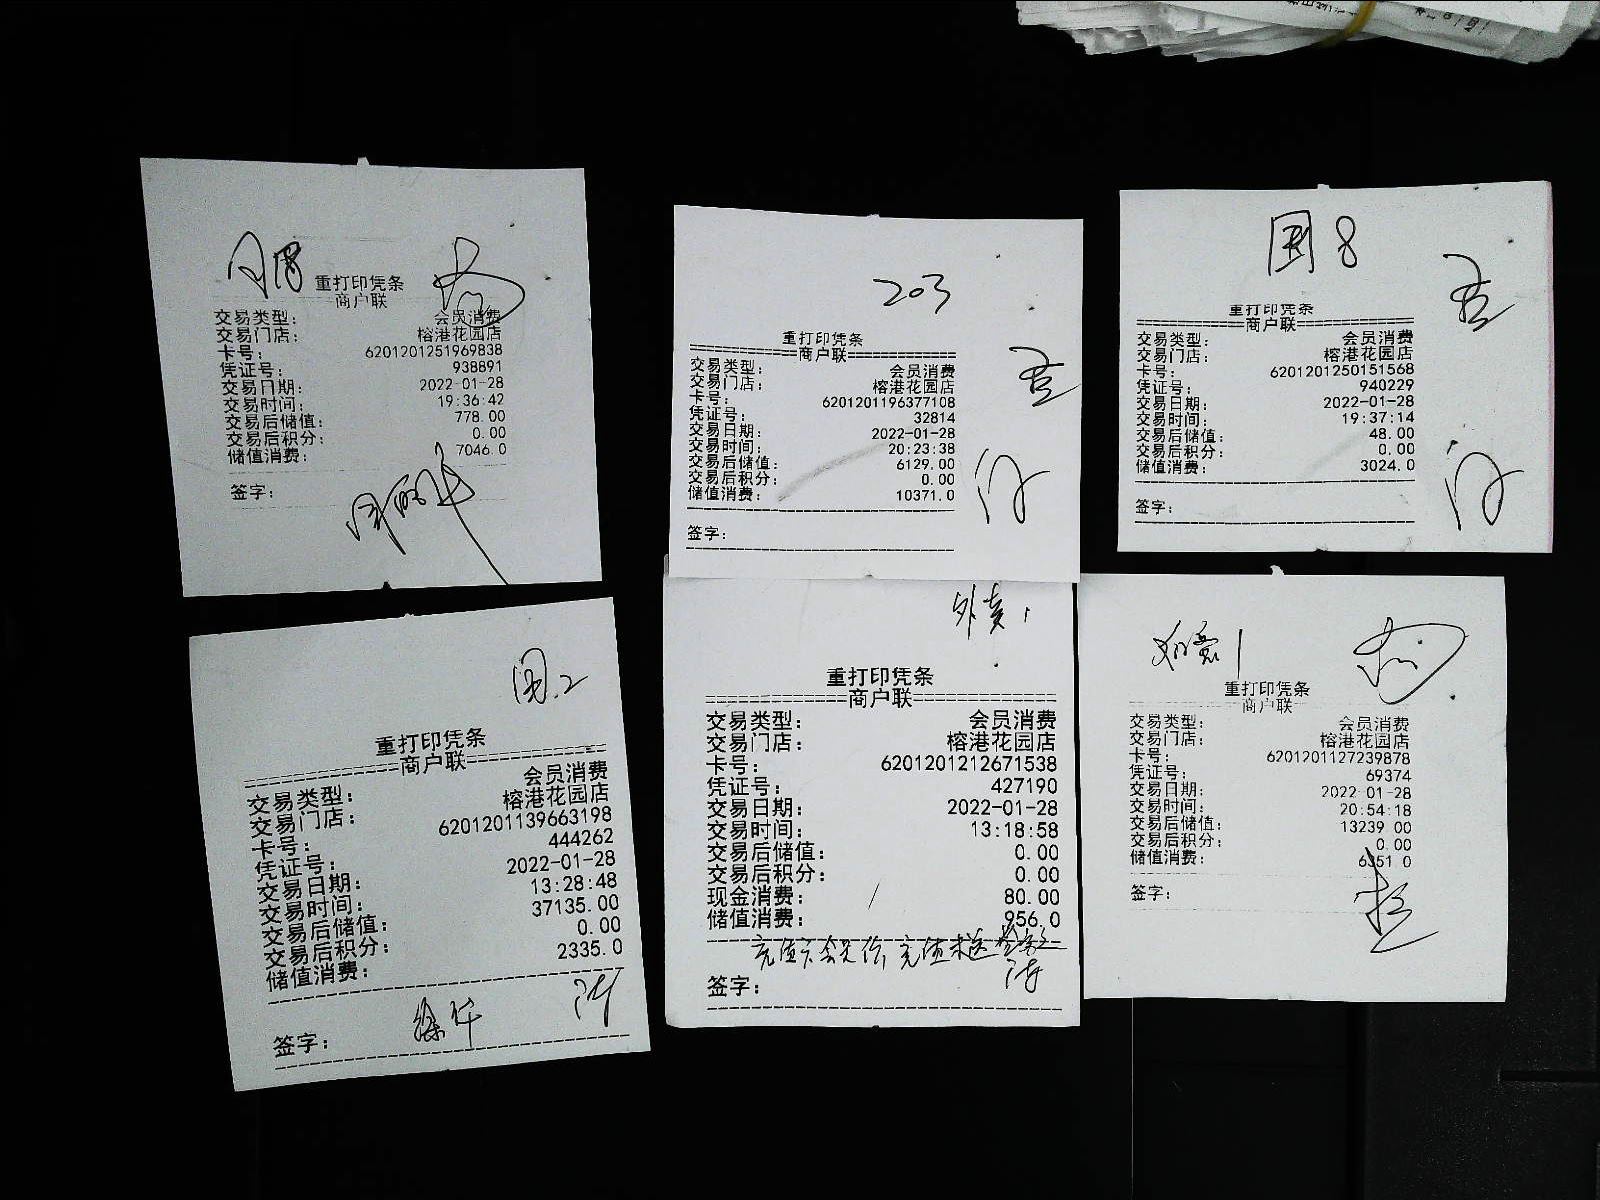 重打印凭条
商户联
交易类型： 会员消费
交易门店： 榕港花园店
卡号： 6201201251969838
凭证号： 938891
交易日期： 2022-01-28
交易时间： 19:36:42
交易后储值： 778.00
交易后积分： 0.00
储值消费： 7046.0
签字：
203
重打印凭条
商户联
交易类型： 会员消费
交易门店： 榕港花园店
卡号： 6201201196377108
凭证号： 32814
交易日期： 2022-01-28
交易时间： 20:23:38
交易后储值： 6129.00
交易后积分： 0.00
储值消费： 10371.0
签字：
国8
重打印凭条
商户联
交易类型： 会员消费
交易门店： 榕港花园店
卡号： 6201201250151568
凭证号： 940229
交易日期： 2022-01-28
交易时间： 19:37:14
交易后储值： 48.00
交易后积分： 0.00
储值消费： 3024.0
签字：
重打印凭条
商户联
交易类型： 会员消费
交易门店： 榕港花园店
卡号： 6201201139663198
凭证号： 444262
交易日期： 2022-01-28
交易时间： 13:28:48
交易后储值： 37135.00
交易后积分： 0.00
储值消费： 2335.0
签字：
外卖1
重打印凭条
商户联
交易类型： 会员消费
交易门店： 榕港花园店
卡号： 6201201212671538
凭证号： 427190
交易日期： 2022-01-28
交易时间： 13:18:58
交易后储值： 0.00
交易后积分： 0.00
现金消费： 80.00
储值消费： 956.0
签字：
重打印凭条
商户联
交易类型： 会员消费
交易门店： 榕港花园店
卡号： 6201201127239878
凭证号： 69374
交易日期： 2022-01-28
交易时间： 20:54:18
交易后储值： 13239.00
交易后积分： 0.00
储值消费： 6351.0
签字：